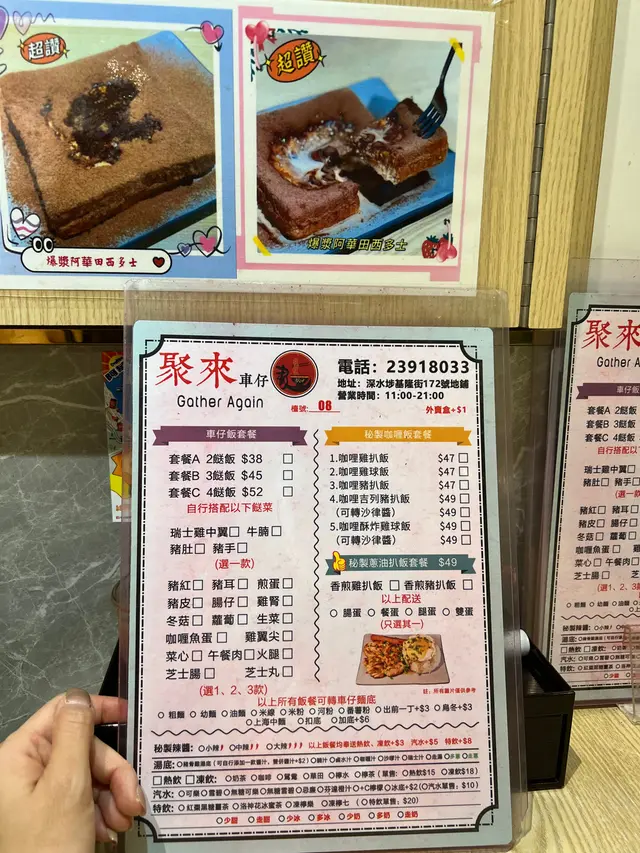 超讚
爆漿阿華田西多士
超讚
爆漿阿華田西多士
聚來 車仔
Gather Again
電話：23918033
地址：深水埗基隆街172號地鋪
營業時間：11:00-21:00
檯號: 08
外賣盒+$1
車仔飯套餐
套餐A 2餸飯 $38 □
套餐B 3餸飯 $45 □
套餐C 4餸飯 $52 □
自行搭配以下餸菜
瑞士雞中翼□ 牛腩□
豬肚□ 豬手□
(選一款)
豬紅□ 豬耳□ 煎蛋□
豬皮□ 腸仔□ 雞腎□
冬菇□ 蘿蔔□ 生菜□
咖喱魚蛋□ 雞翼尖□
菜心□ 午餐肉□ 火腿□
芝士腸□ 芝士丸□
(選1、2、3款)
秘製咖喱飯套餐
1.咖哩雞扒飯 $47□
2.咖哩雞球飯 $47□
3.咖哩豬扒飯 $47□
4.咖哩吉列豬扒飯 $49□
(可轉沙律醬) $49□
5.咖哩酥炸雞球飯 $49□
(可轉沙律醬) $49□
秘製蔥油扒飯套餐 $49
香煎雞扒飯 □ 香煎豬扒飯 □
以上配送
○ 腸蛋 ○ 餐蛋 ○ 腿蛋 ○ 雙蛋
(只選其一)
註：所有圖片僅供參考
以上所有飯餐可轉車仔麵底
○ 粗麵 ○ 幼麵 ○ 油麵 ○ 米線 ○ 米粉 ○ 河粉 ○ 番薯粉 ○ 出前一丁+$3 ○ 烏冬+$3
○上海中麵 ○ 扣底 ○ 加底+$6
秘製辣醬：○小辣 ○中辣 ○大辣 以上飯餐均奉送熱飲、凍飲+$3 汽水+$5 特飲+$8
湯底：
□熱飲 □凍飲：○奶茶 ○咖啡 ○鴛鴦 ○華田 ○檸水 ○檸茶 (單售：熱飲$15 ○凍飲$18)
汽水：○可樂○雪碧○無糖可樂○無糖雪碧○忌廉○芬達橙汁○+C檸檬○冰底+$2(○汽水單售：$10)
特飲：○紅棗黑糖薑茶 ○洛神花冰蜜茶 ○凍檸樂 ○凍檸七 (○特飲單售：$20)
○少甜 ○走甜 ○少冰 ○多冰 ○少奶 ○多奶 ○走奶
聚來
Gather A
車仔飯
套餐A 2餸飯
套餐B 3餸飯
套餐C 4餸飯
自行搭配以
瑞士雞中翼
豬肚□ 豬手
(選一款
豬紅□ 豬耳
豬皮□ 腸仔
冬菇□ 蘿蔔
咖喱魚蛋□
菜心□ 午餐
芝士腸□
(選1、2、3